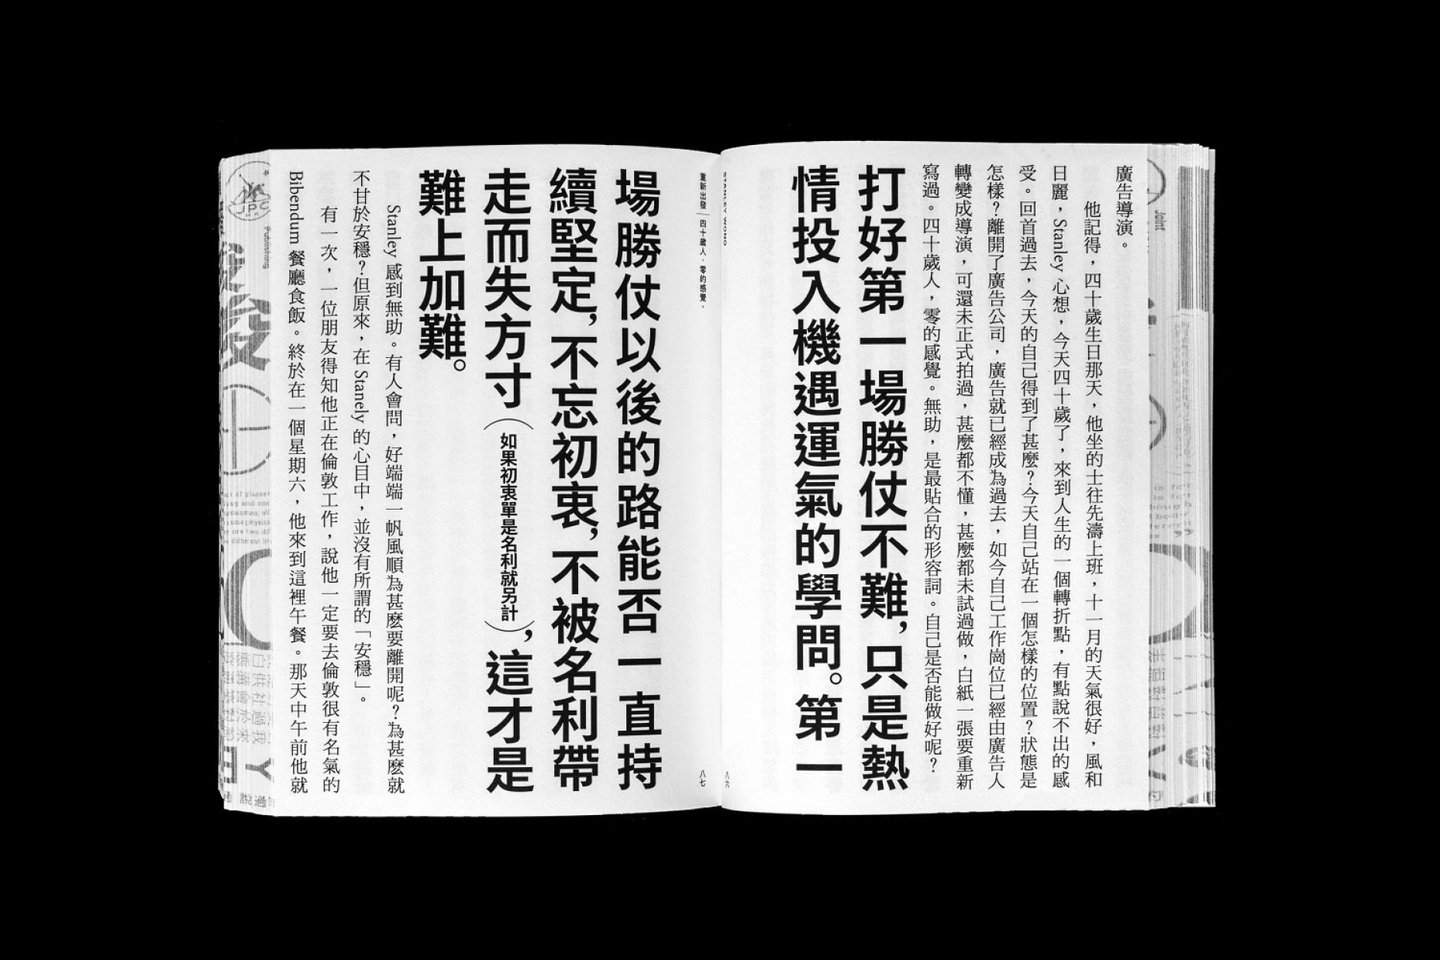 廣告導演。
他記得，四十歲生日那天，他坐的士往先濤上班，十一月的天氣很好，風和
日麗，Stanley 心想，今天四十歲了，來到人生的一個轉折點，有點說不出的感
受。回首過去，今天的自己得到了甚麼？今天自己站在一個怎樣的位置？狀態是
怎樣？離開了廣告公司，廣告就已經成為過去，如今自己工作崗位已經由廣告人
轉變成導演，可還未正式拍過，甚麼都不懂，甚麼都未試過做，白紙一張要重新
寫過。四十歲人，零的感覺。無助，是最貼合的形容詞。自己是否能做好呢？
打好第一場勝仗不難，只是熱
情投入機遇運氣的學問。第一
八六
STANLEY WONG
重新出發｜四十歲人，零的感覺。
八七
場勝仗以後的路能否一直持
續堅定，不忘初衷，不被名利帶
走而失方寸（如果初衷單是名利就另計），這才是
難上加難。
Stanley 感到無助。有人會問，好端端一帆風順為甚麼要離開呢？為甚麼就
不甘於安穩？但原來，在 Stanely 的心目中，並沒有所謂的「安穩」。
有一次，一位朋友得知他正在倫敦工作，說他一定要去倫敦很有名氣的
Bibendum 餐廳食飯。終於在一個星期六，他來到這裡午餐。那天中午前他就
Publishing